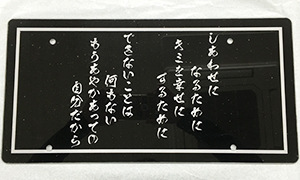 しあわせに
なるために
きみを幸せに
するために
できないことは
何もない
もうあやかあっての
自分だから